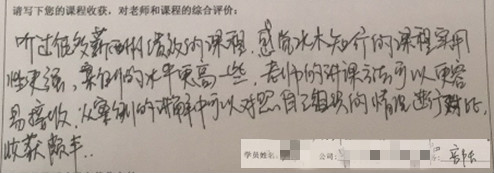 请写下您的课程收获，对老师和课程的综合评价：
听过很多薪酬绩效的课程，感觉水木知行的课程实用
性更强，案例的水平更高一些，老师的讲课方法可以更容
易接收，从案例的讲解中可以对照自己组织的情况进行对比，
收获颇丰..
学员姓名： 公司： 部长